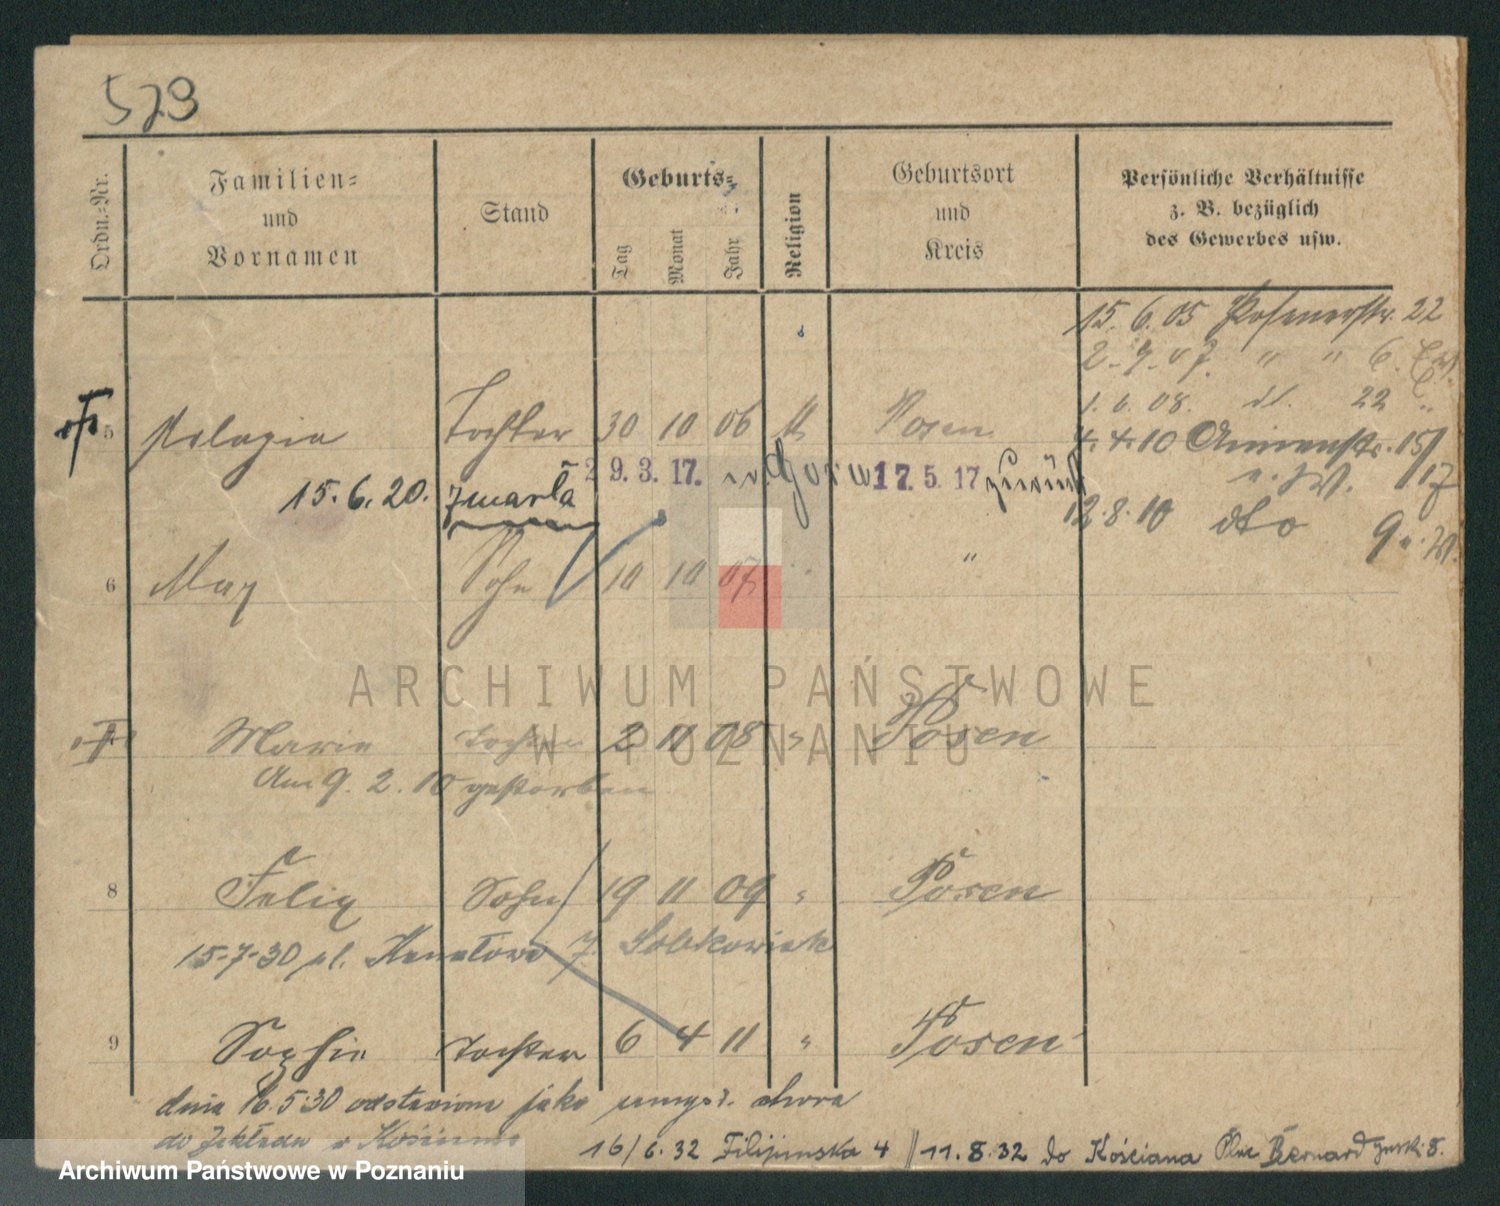 573
Ordn.-Nr.
Familien-
und
Vornamen
Stand
Geburts-
Tag
Monat
Jahr
Religion
Geburtsort
und
Kreis
Persönliche Verhältnisse
z. B. bezüglich
des Gewerbes usw.
15. 6. 05 Posenerstr. 22
2. 9. 07. " " 6.
1. 6. 08. 22 "
5 Pelagia Tochter 30 10 06 k Posen
4. 4. 10 15/17
29.3.17. 17.5.17 zurück
15.6.20. zmarła
12.8.10 dto 9
6 Max Sohn 10 10 07 " "
ARCHIWUM PAŃSTWOWE
W POZNANIU
Marie Tochter 2 11 08 " Posen
Am 9. 2. 10 gestorben
8 Felix Sohn 19 11 09 " Posen
15-7-30 pl. 7. Sobkowiak
9 Sophie Tochter 6 4 11 " Posen
dnia 16.5.30 odstawiona jako umysł. chora
do Zakładu w Kościanie
16/6.32 Filipinska 4 // 11.8.32 do Kościana Plac Bernardynski 8.
Archiwum Państwowe w Poznaniu